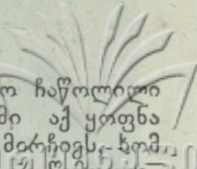 ო ჩაწოლილი
ში აქ ყოფნა
მირჩიევს, ხომ